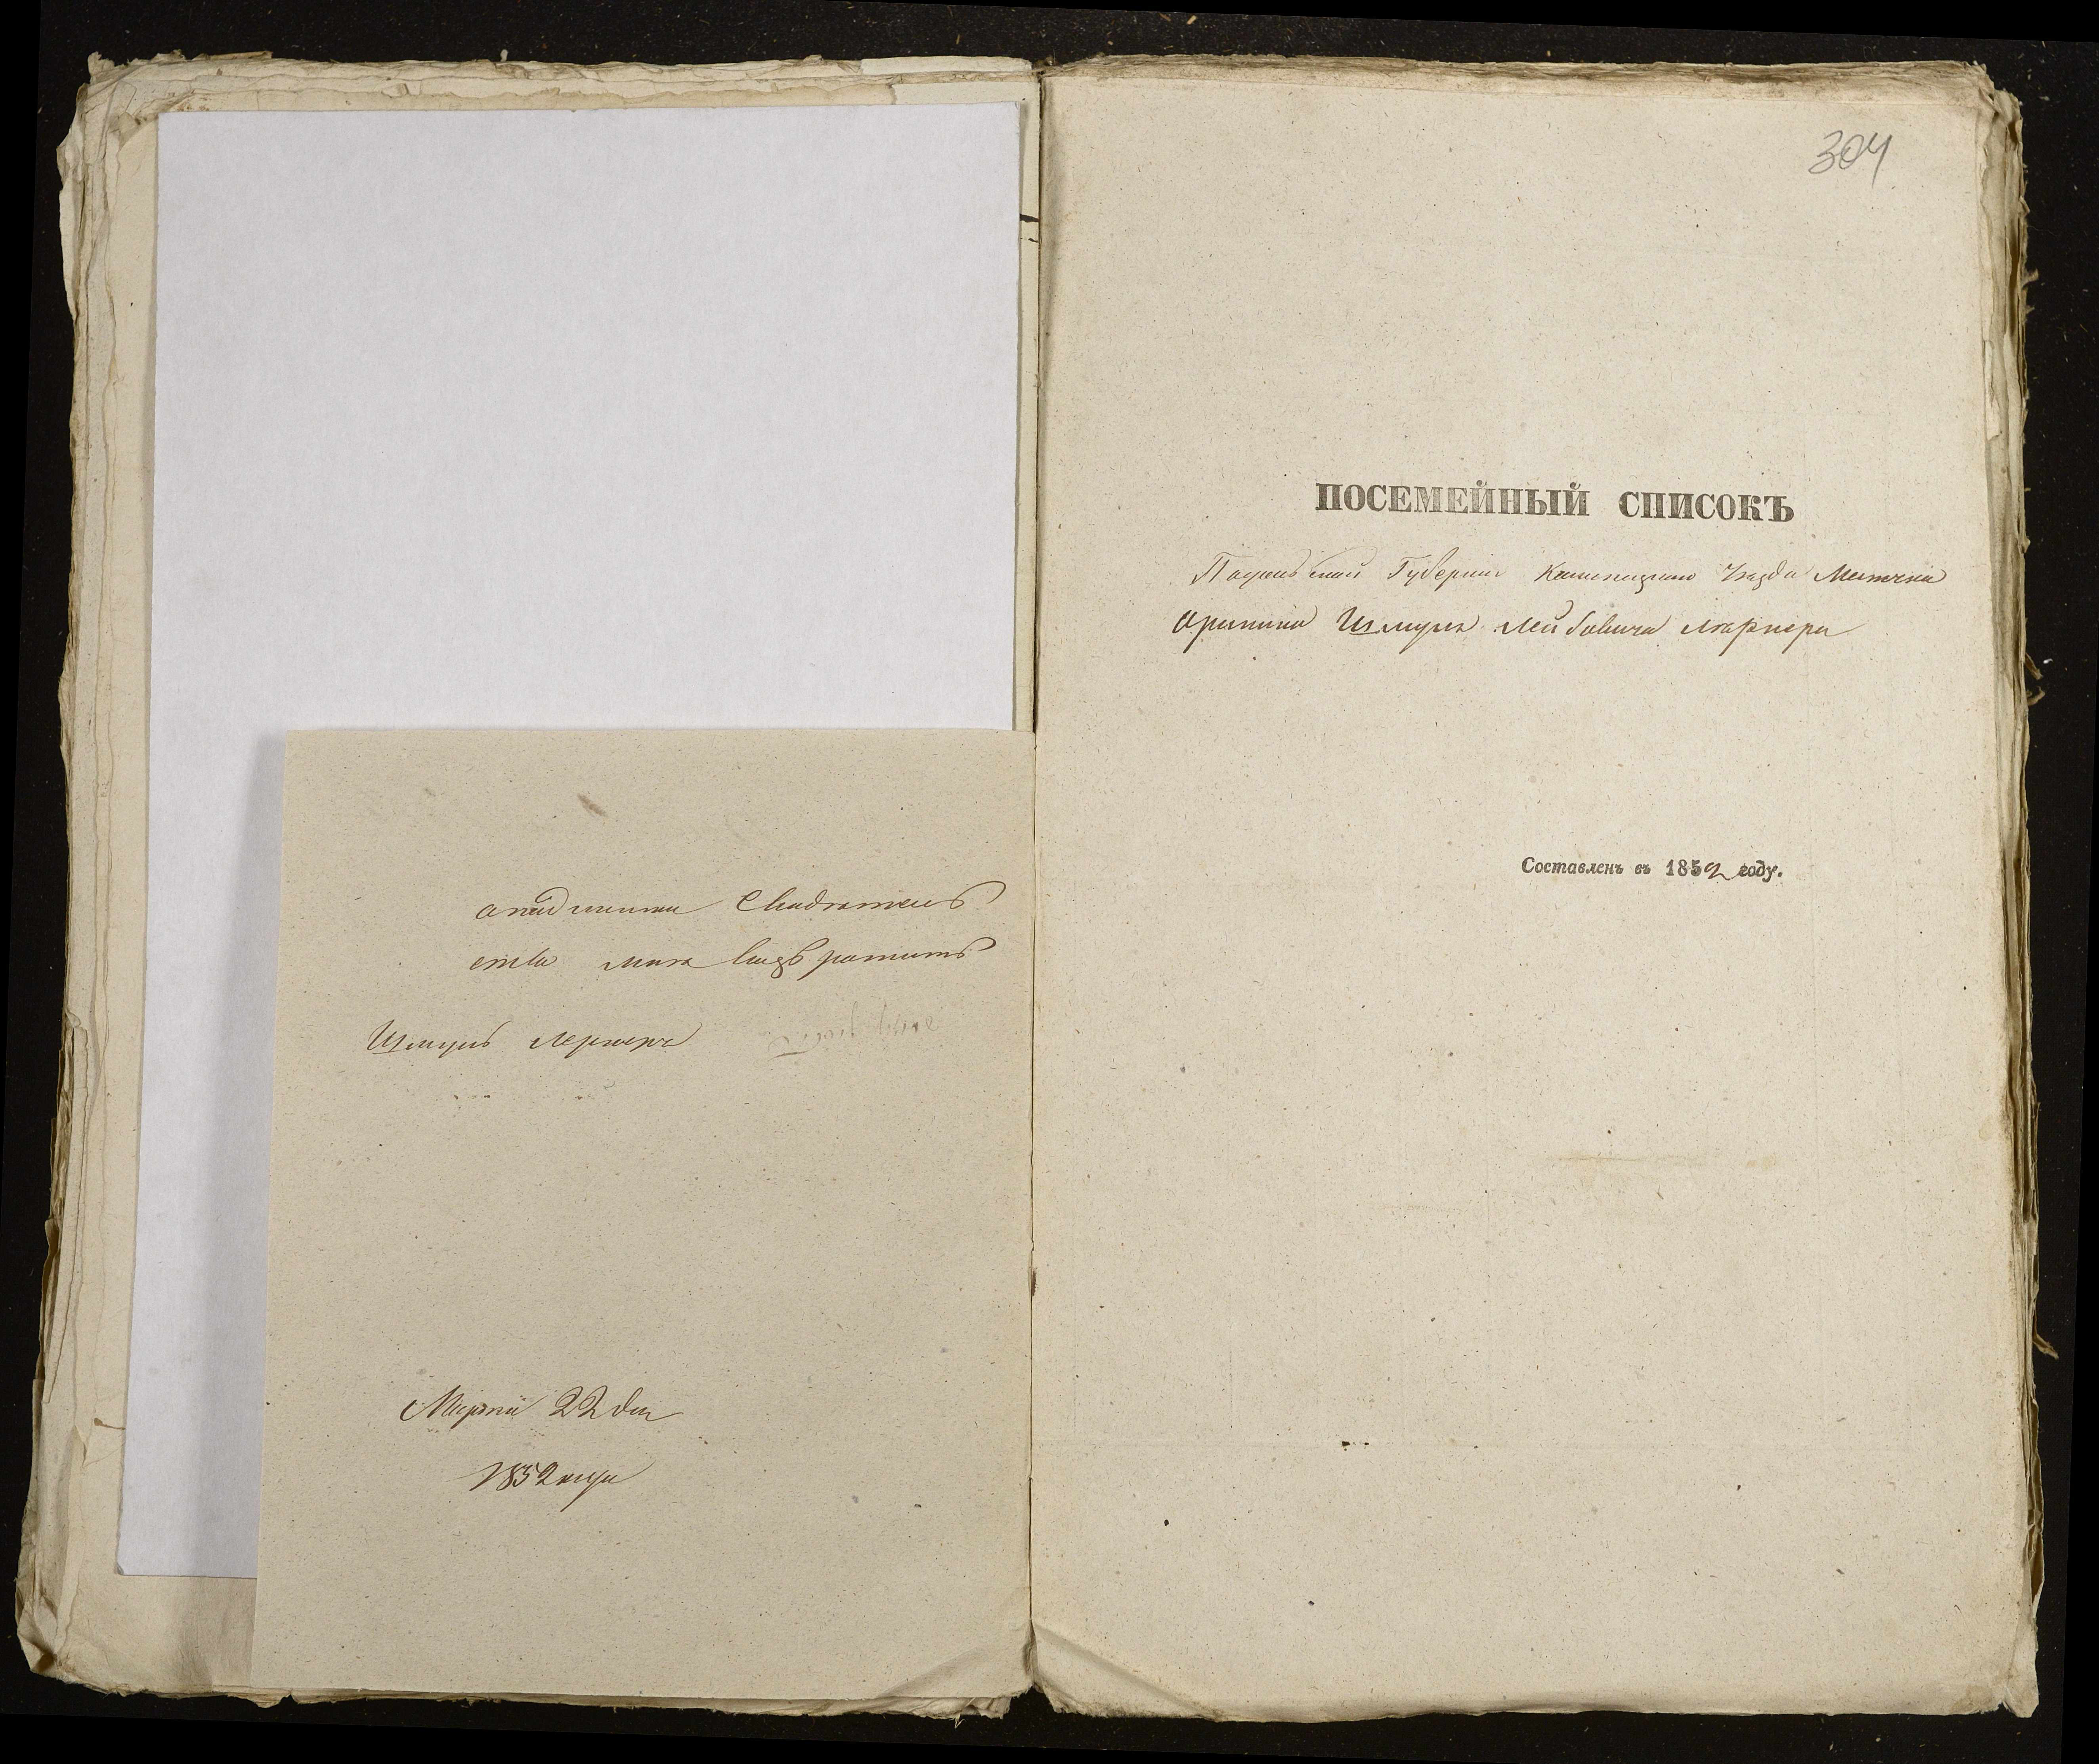 Свидѣтель
ства мнѣ возвратить
Шмуль Лернеръ
Марта 22 дня
1852 года
304
ПОСЕМЕЙНЫЙ СПИСОКЪ
Подольской Губерніи Каменецкаго Уѣзда Мѣстечка
Орынина Шмуля Лейбовича Лернера
Составленъ въ 1852 году.